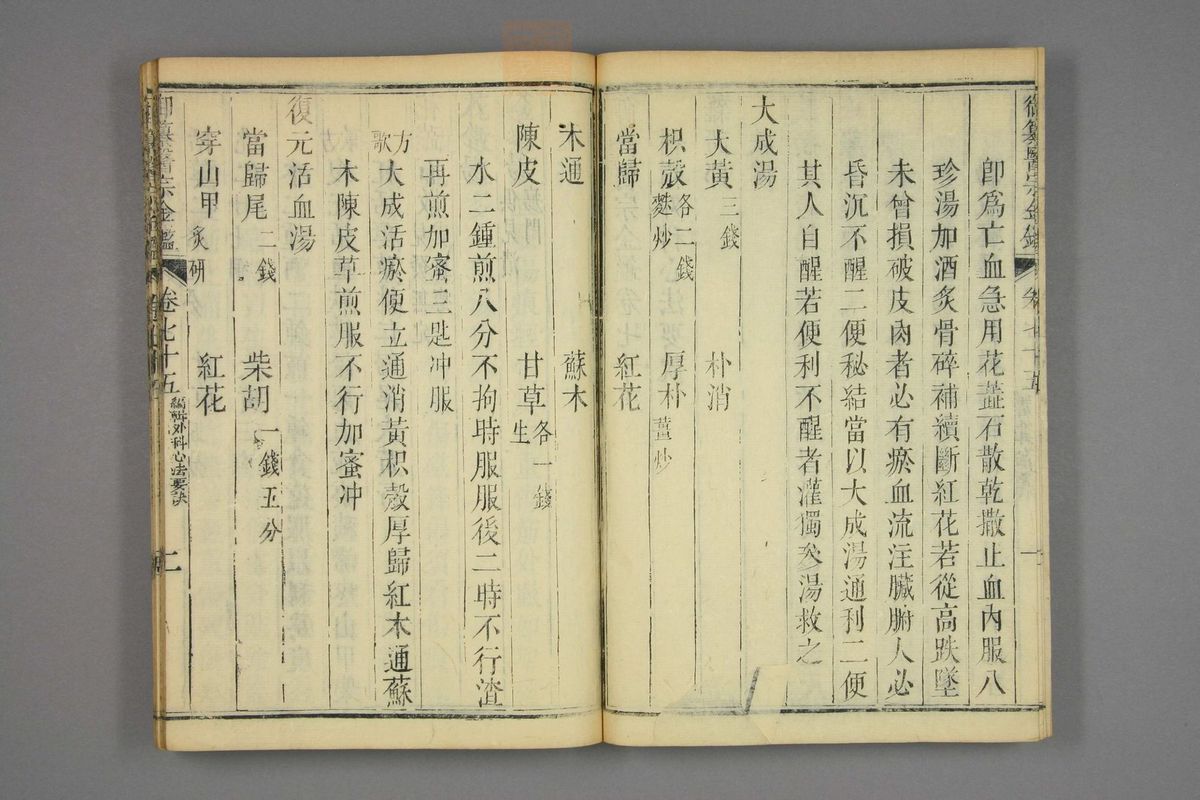 御纂醫宗金鑑
卷七十五
一
即爲亡血急用花蕋石散乾撒止血內服八
珍湯加酒炙骨碎補續斷紅花若從高跌墜
未曾損破皮肉者必有瘀血流注臟腑人必
昏沉不醒二便秘結當以大成湯通利二便
其人自醒若便利不醒者灌獨參湯救之
大成湯
大黃三錢 朴消
枳殼各二錢麩炒 厚朴薑炒
當歸 紅花
木通 蘇木
陳皮 甘草各一錢生
水二鍾煎八分不拘時服服後二時不行渣
再煎加蜜三匙冲服
方歌大成活瘀便立通消黃枳殼厚歸紅木通蘇
木陳皮草煎服不行加蜜冲
復元活血湯
當歸尾二錢 柴胡一錢五分
穿山甲炙研 紅花
御纂醫宗金鑑
卷七十五
編輯外科心法要訣
二